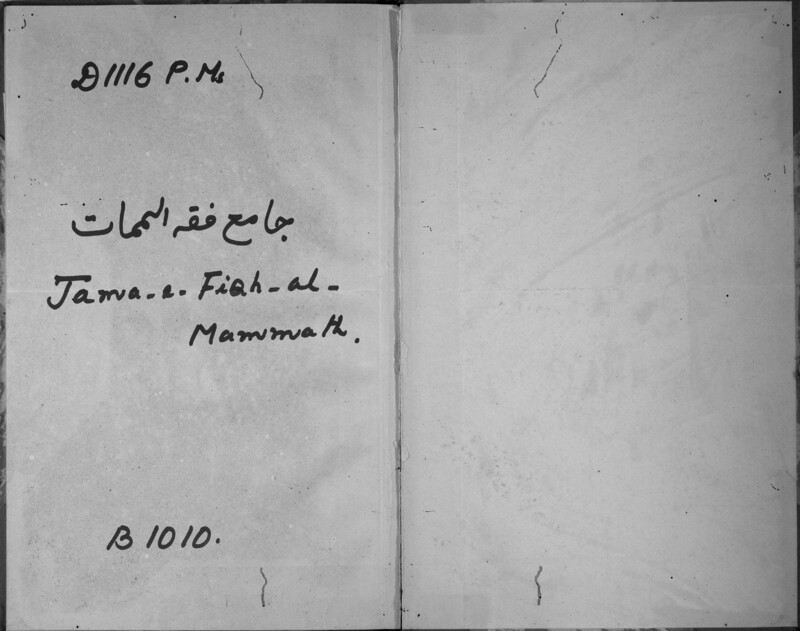 D1116 P.Ms
جامع فقه الممات
Jama-e-Fiqh-al-
Mammath.
B 1010.